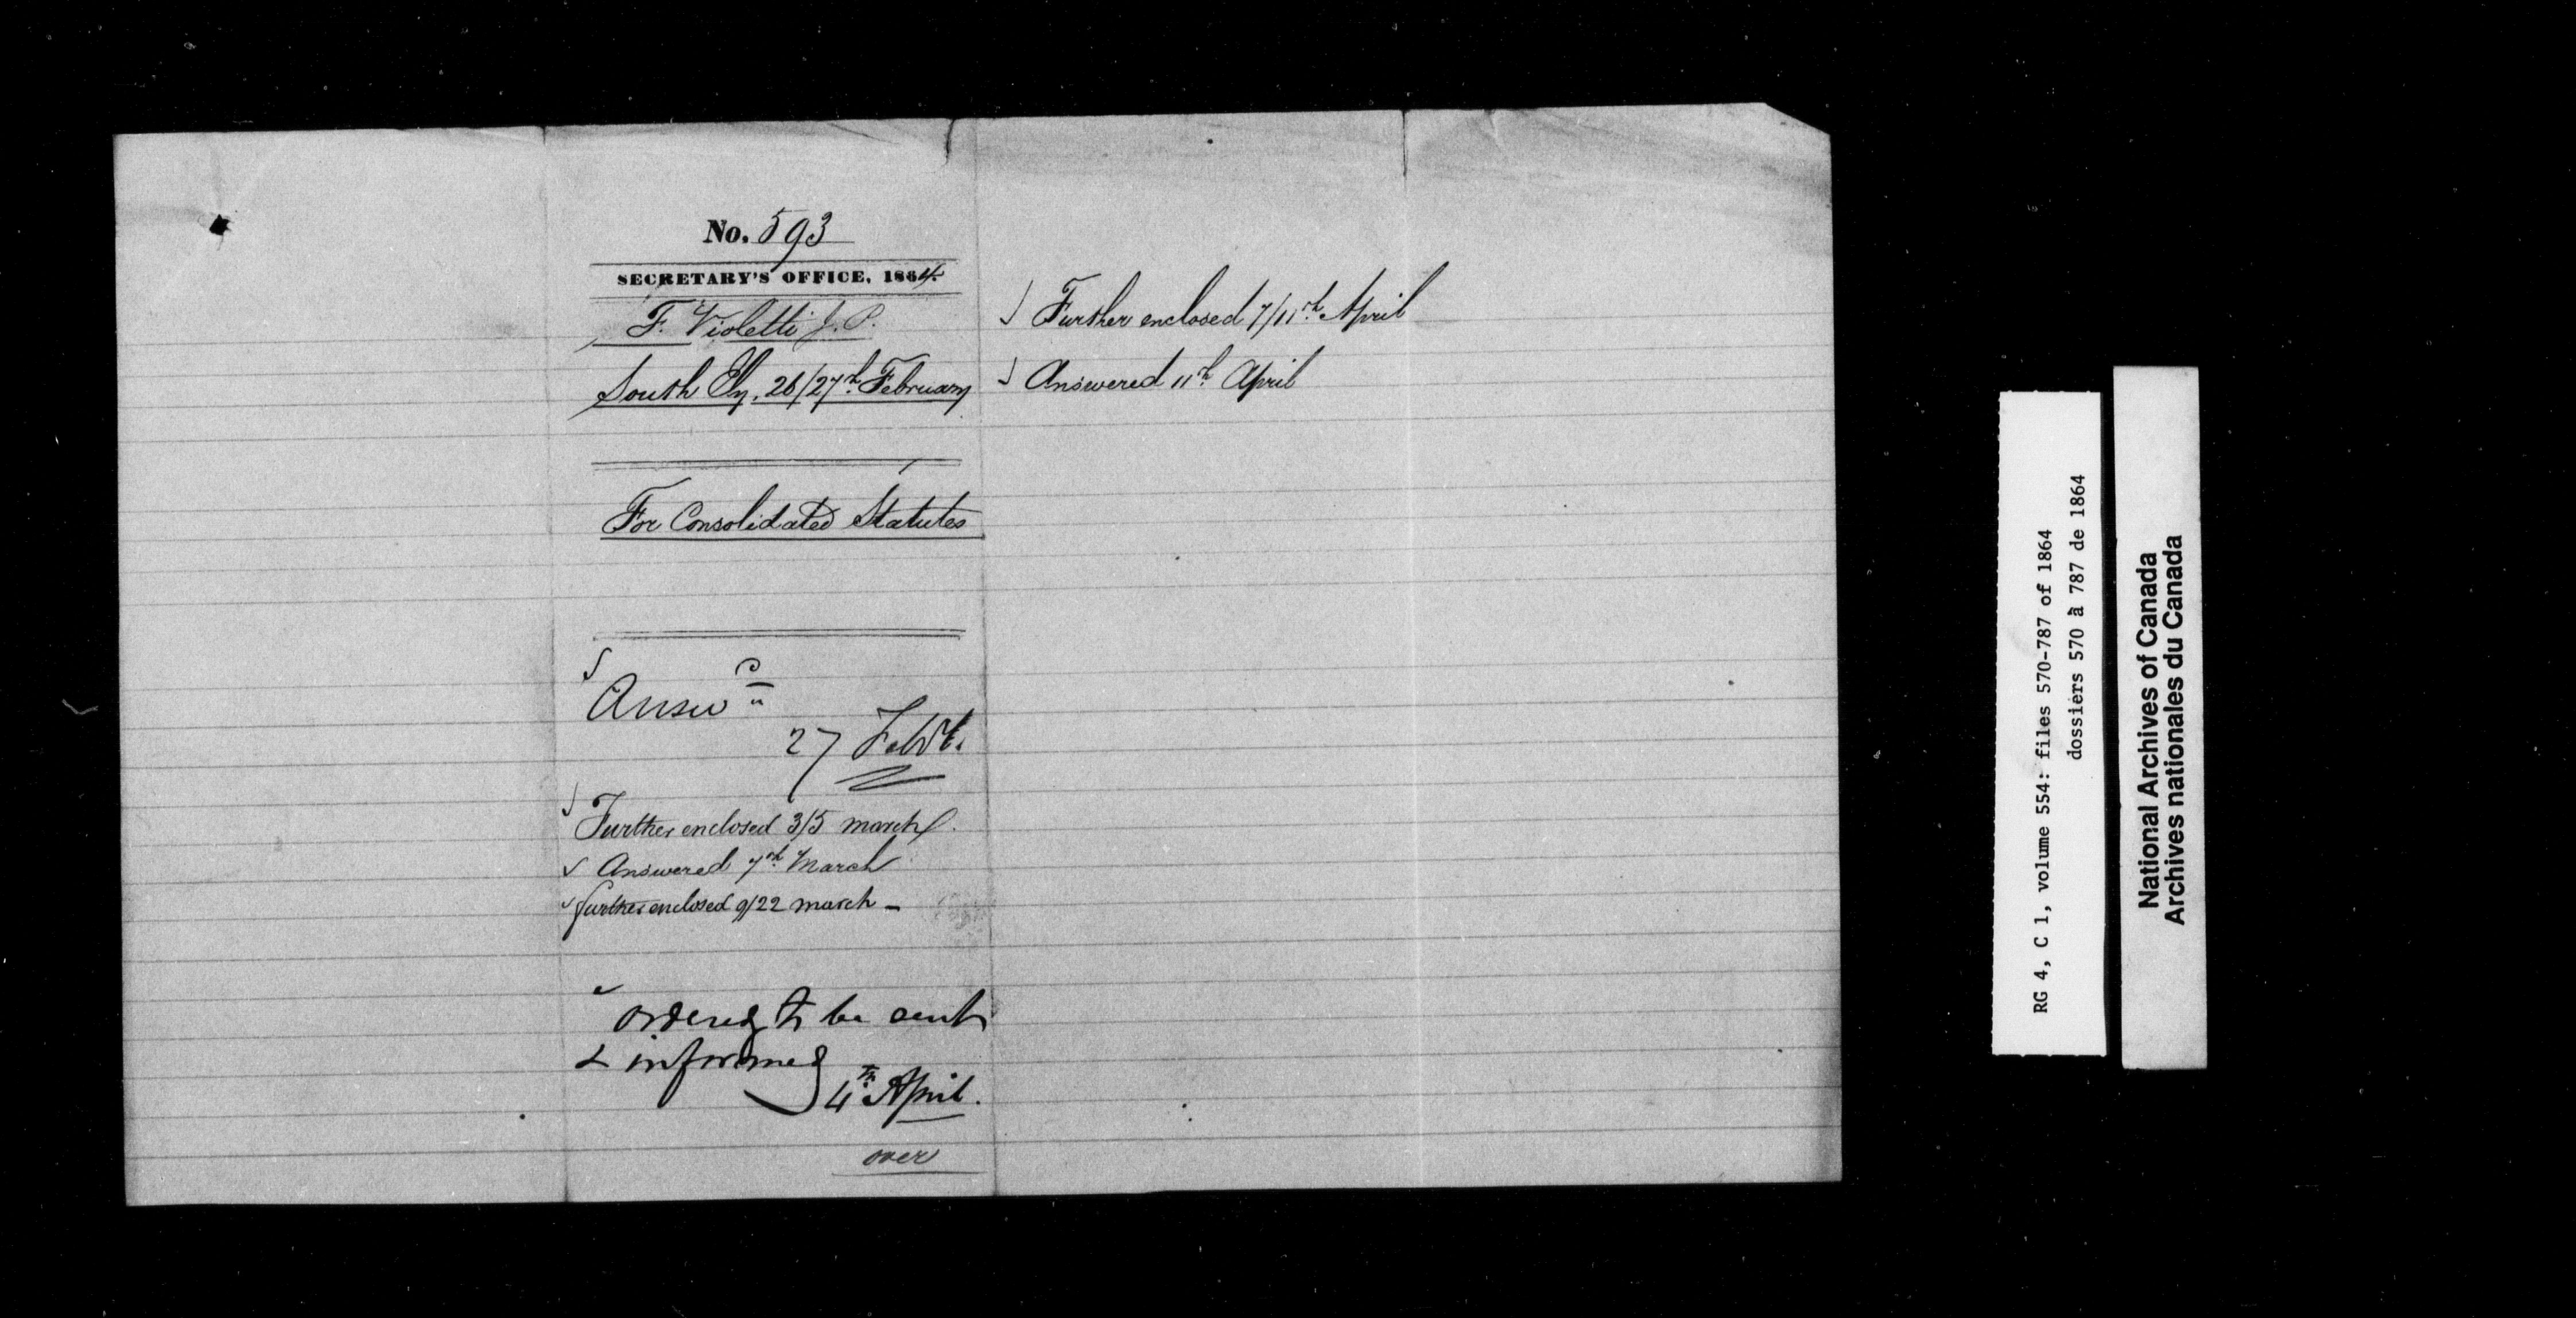 No. 593
SECRETARY'S OFFICE, 1864.
F. Violetti J. P.
South Ely, 26/27th February
For Consolidated Statutes
Answd
27 Feb
Further enclosed 3/5 march
Answered 7th March
further enclosed 9/22 march -
ordered to be sent
& informed
4th April.
over
Further enclosed 7/11th April
Answered 11th April
RG 4, C 1, volume 554: files 570-787 of 1864
dossiers 570 à 787 de 1864
National Archives of Canada
Archives nationales du Canada